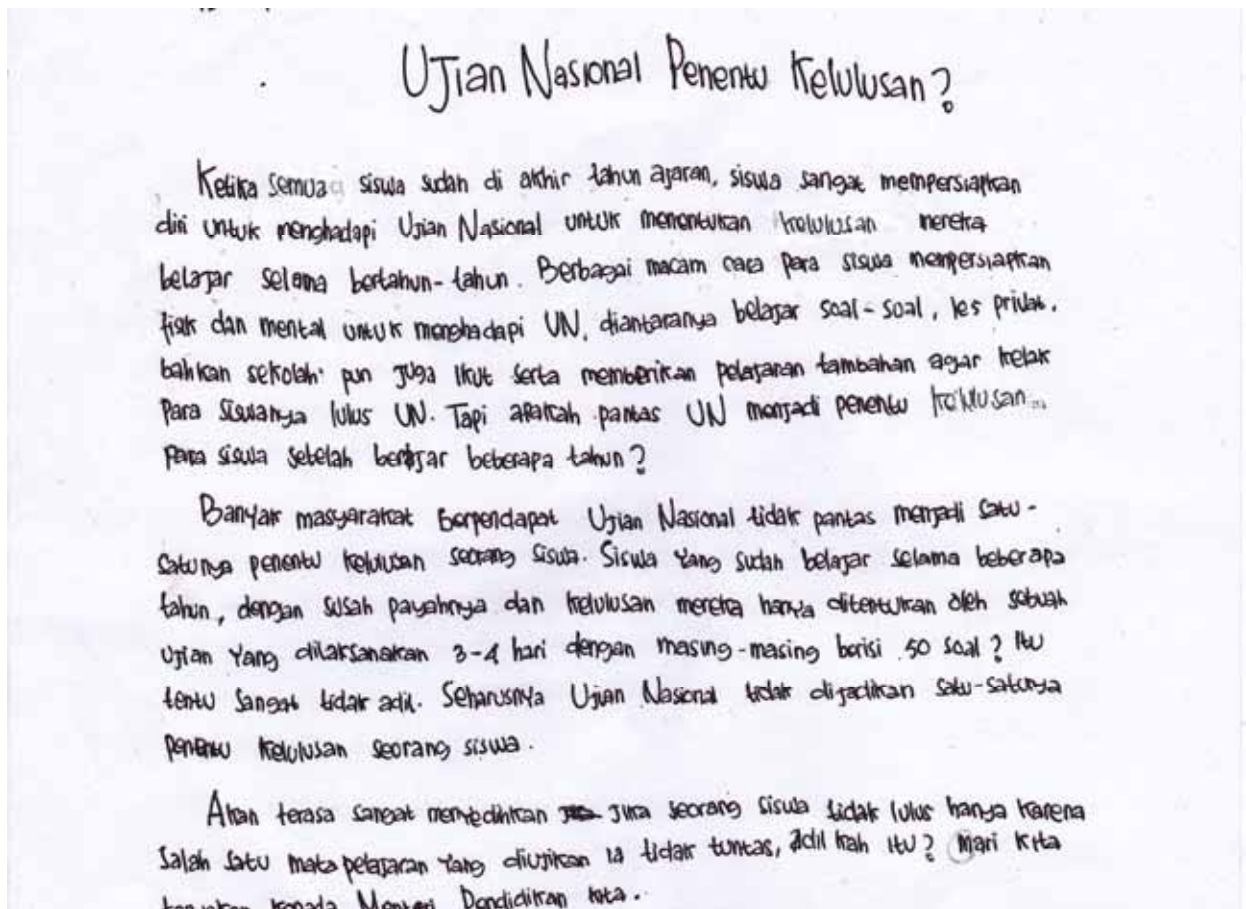 Ujian Nasional Penentu Kelulusan?
Ketika semua siswa sudah di akhir tahun ajaran, siswa sangat mempersiapkan
diri untuk menghadapi Ujian Nasional untuk menentukan kelulusan mereka
belajar selama bertahun-tahun. Berbagai macam cara para siswa mempersiapkan
fisik dan mental untuk menghadapi UN, diantaranya belajar soal-soal, les privat.
bahkan sekolah pun juga ikut serta memberikan pelajaran tambahan agar kelak
para siswanya lulus UN. Tapi apakah pantas UN menjadi penentu kelulusan
para siswa setelah belajar beberapa tahun?
Banyak masyarakat berpendapat Ujian Nasional tidak pantas menjadi satu-
satunya penentu kelulusan seorang siswa. Siswa yang sudah belajar selama beberapa
tahun, dengan susah payahnya dan kelulusan mereka hanya ditentukan oleh sebuah
ujian yang dilaksanakan 3-4 hari dengan masing-masing berisi 50 soal? Itu
tentu sangat tidak adil. Seharusnya Ujian Nasional tidak dijadikan satu-satunya
penentu kelulusan seorang siswa.
Akan terasa sangat menyedihkan jika seorang siswa tidak lulus hanya karena
salah satu mata pelajaran yang diujikan ia tidak tuntas, adil kah itu? Mari kita
tanyakan kepada Menteri Pendidikan kita.